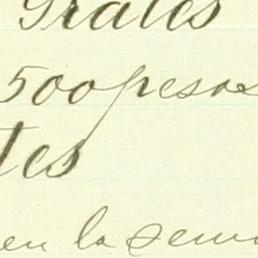 Grates
500 pesos
tes
en la sema